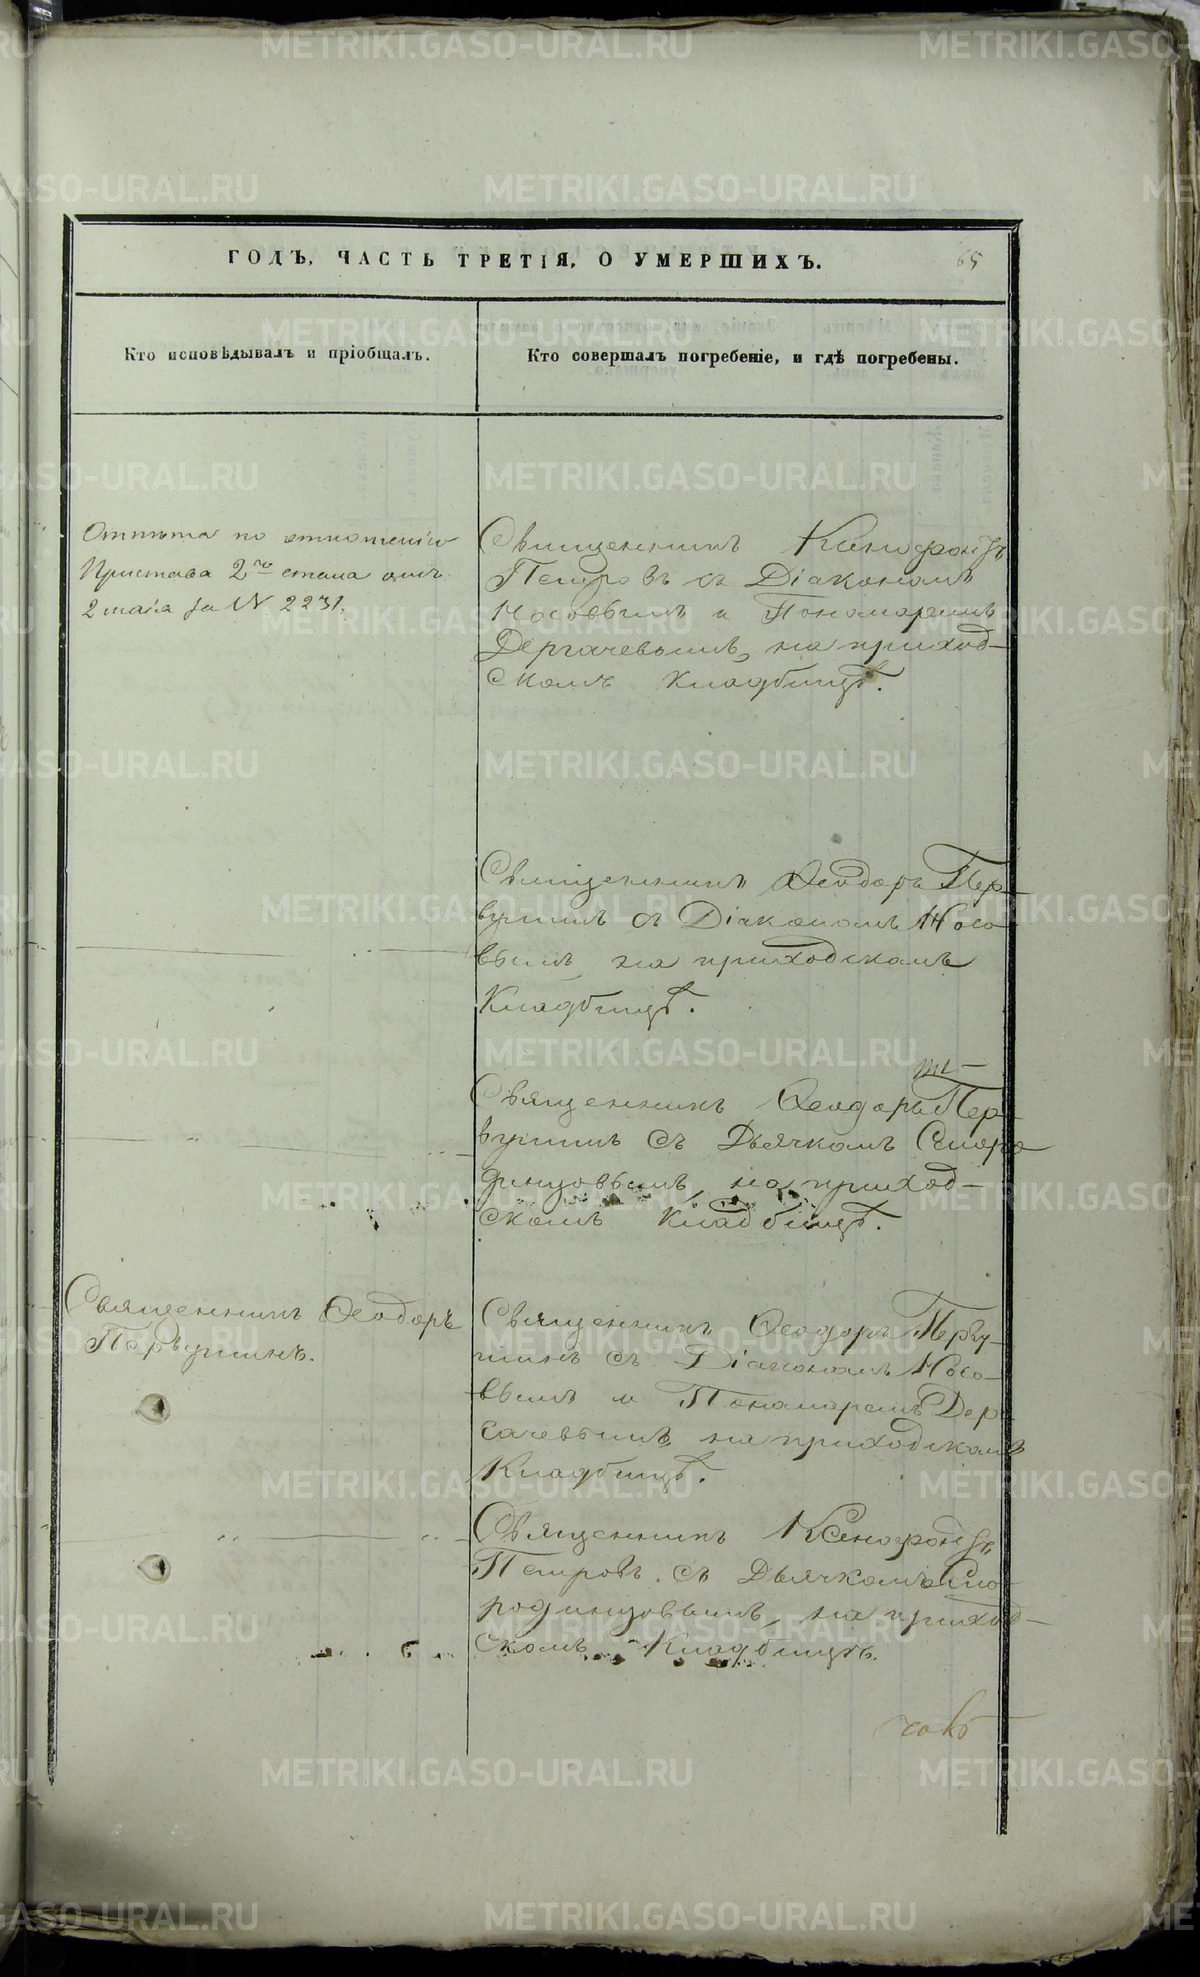 ГОДЪ, ЧАСТЬ ТРЕТІЯ, О УМЕРШИХЪ.
65
Кто исповѣдывалъ и пріобщалъ.
Кто совершалъ погребеніе, и гдѣ погребены.
Отпѣта по отношенію
Пристава 2го стана отъ
2 маія за № 2231.
Священникъ Ксенофонтъ
Петровъ съ Діакономъ
Носовымъ и Пономаремъ
Дергачевымъ, на приход-
скомъ кладбищѣ.
Священникъ Ѳеодоръ Пер-
вушинъ съ Діакономъ Носо-
вымъ на приходскомъ
Кладбищѣ.
Священникъ Ѳеодоръ Пер-
вушинъ съ Дьячкомъ Сморо-
динцовымъ, на приход-
скомъ кладбищѣ.
Священникъ Ѳеодоръ
Первушинъ.
Священникъ Ѳеодоръ Перву-
шинъ съ Діакономъ Носо-
вымъ и Пономаремъ Дер-
гачевымъ на приходскомъ
Кладбищѣ.
Священникъ Ксенофонтъ
Петровъ съ Дьячкомъ Смо-
родинцовымъ, на приход-
скомъ Кладбищѣ.
METRIKI.GASO-URAL.RU